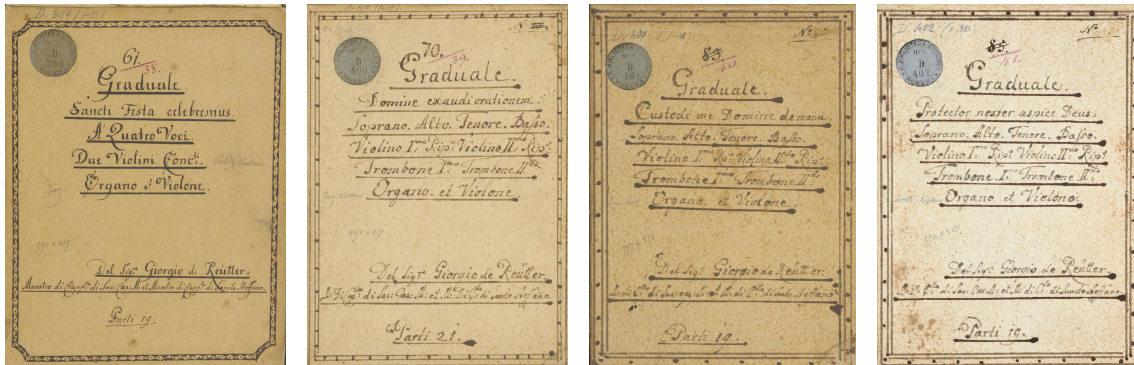 D. 399 (1-19)
D
399
61.
38.
Graduale
Sancti Festa celebremus.
A Quatro Voci.
Due Violini Conc:
Organo e Violone.
Del Sig:r Giorgio di Reütter.
Maestro di Capp:
Parti 19.
D
400
70.
39.
Graduale.
Domine exaudi orationem.
Soprano. Alto. Tenore. Basso.
Violino I:mo Rip: Violino II:do Rip:
Trombone I:mo Trombone II:do
Organo. et Violone.
Del Sig:r Giorgio de Reütter
Parti 21.
D. 401 (1-18)
No
D
401
83.
40.
Graduale.
Custodi me Domine de manu.
Soprano. Alto. Tenore. Basso.
Violino I:mo Rip: Violino II:do Rip:
Trombone I:mo Trombone II:do
Organo. et Violone.
Del Sig:r Giorgio de Reütter.
Parti 19.
D. 402
No
D
402
85.
41.
Graduale.
Protector noster aspice Deus.
Soprano. Alto. Tenore. Basso.
Violino I:mo Rip: Violino II:do Rip:
Trombone I:mo Trombone II:do
Organo et Violono.
Del Sig:r Giorgio de Reütter
Parti 19.